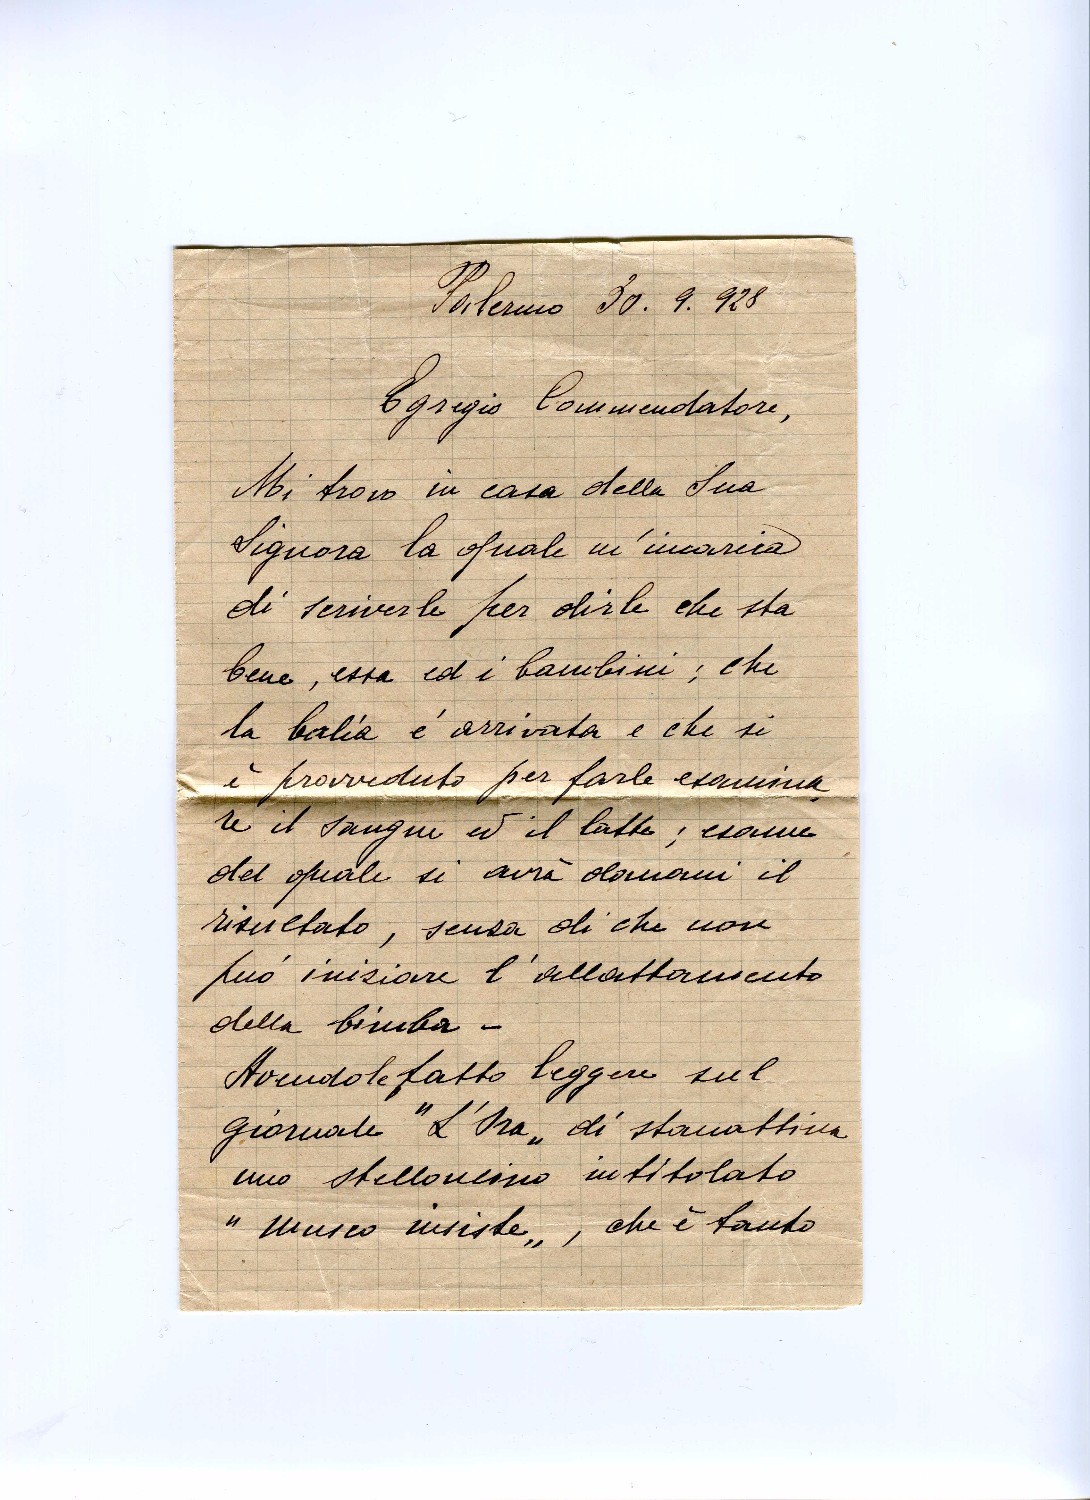 Palermo 30. 9. 928
Egregio Commendatore,
Mi trovo in casa della Sua
Signora la quale m'incarica
di scriverle per dirle che sta
bene, essa ed i bambini; che
la balia é arrivata e che si
è provveduto per farle esamina
re il sangue ed il latte; esame
del quale si avrà domani il
risultato, senza di che non
può iniziare l'allattamento
della bimba -
Avendole fatto leggere sul
giornale "L'Ora„ di stamattina
uno stelloncino intitolato
" Musco insiste„, che è tanto